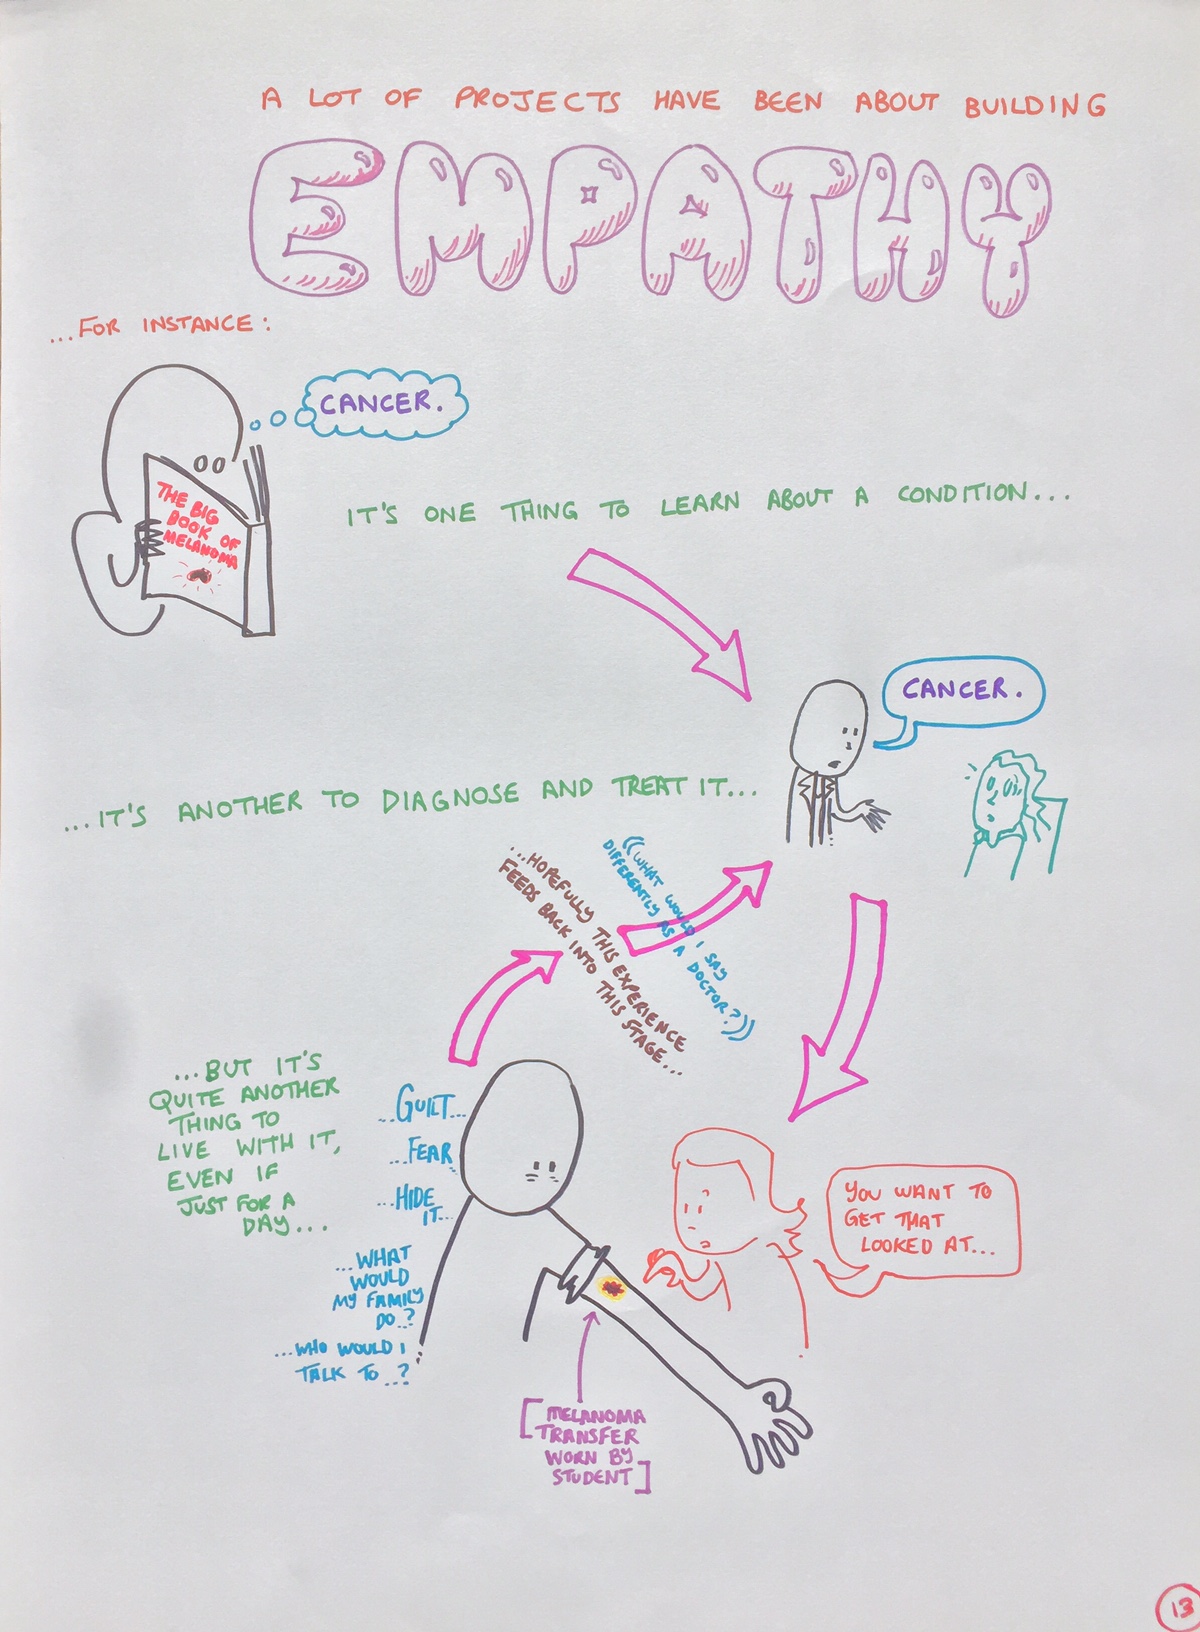 A LOT OF PROJECTS HAVE BEEN ABOUT BUILDING
EMPATHY
...FOR INSTANCE:
CANCER.
THE BIG
BOOK OF
MELANOMA
IT'S ONE THING TO LEARN ABOUT A CONDITION...
CANCER.
...IT'S ANOTHER TO DIAGNOSE AND TREAT IT...
((WHAT WOULD I SAY
DIFFERENTLY AS A DOCTOR?))
...HOPEFULLY THIS EXPERIENCE
FEEDS BACK INTO THIS STAGE...
...BUT IT'S
QUITE ANOTHER
THING TO
LIVE WITH IT,
EVEN IF
JUST FOR A
DAY...
...GUILT...
...FEAR...
...HIDE
IT...
...WHAT
WOULD
MY FAMILY
DO..?
...WHO WOULD I
TALK TO...?
YOU WANT TO
GET THAT
LOOKED AT...
[MELANOMA
TRANSFER
WORN BY
STUDENT]
13